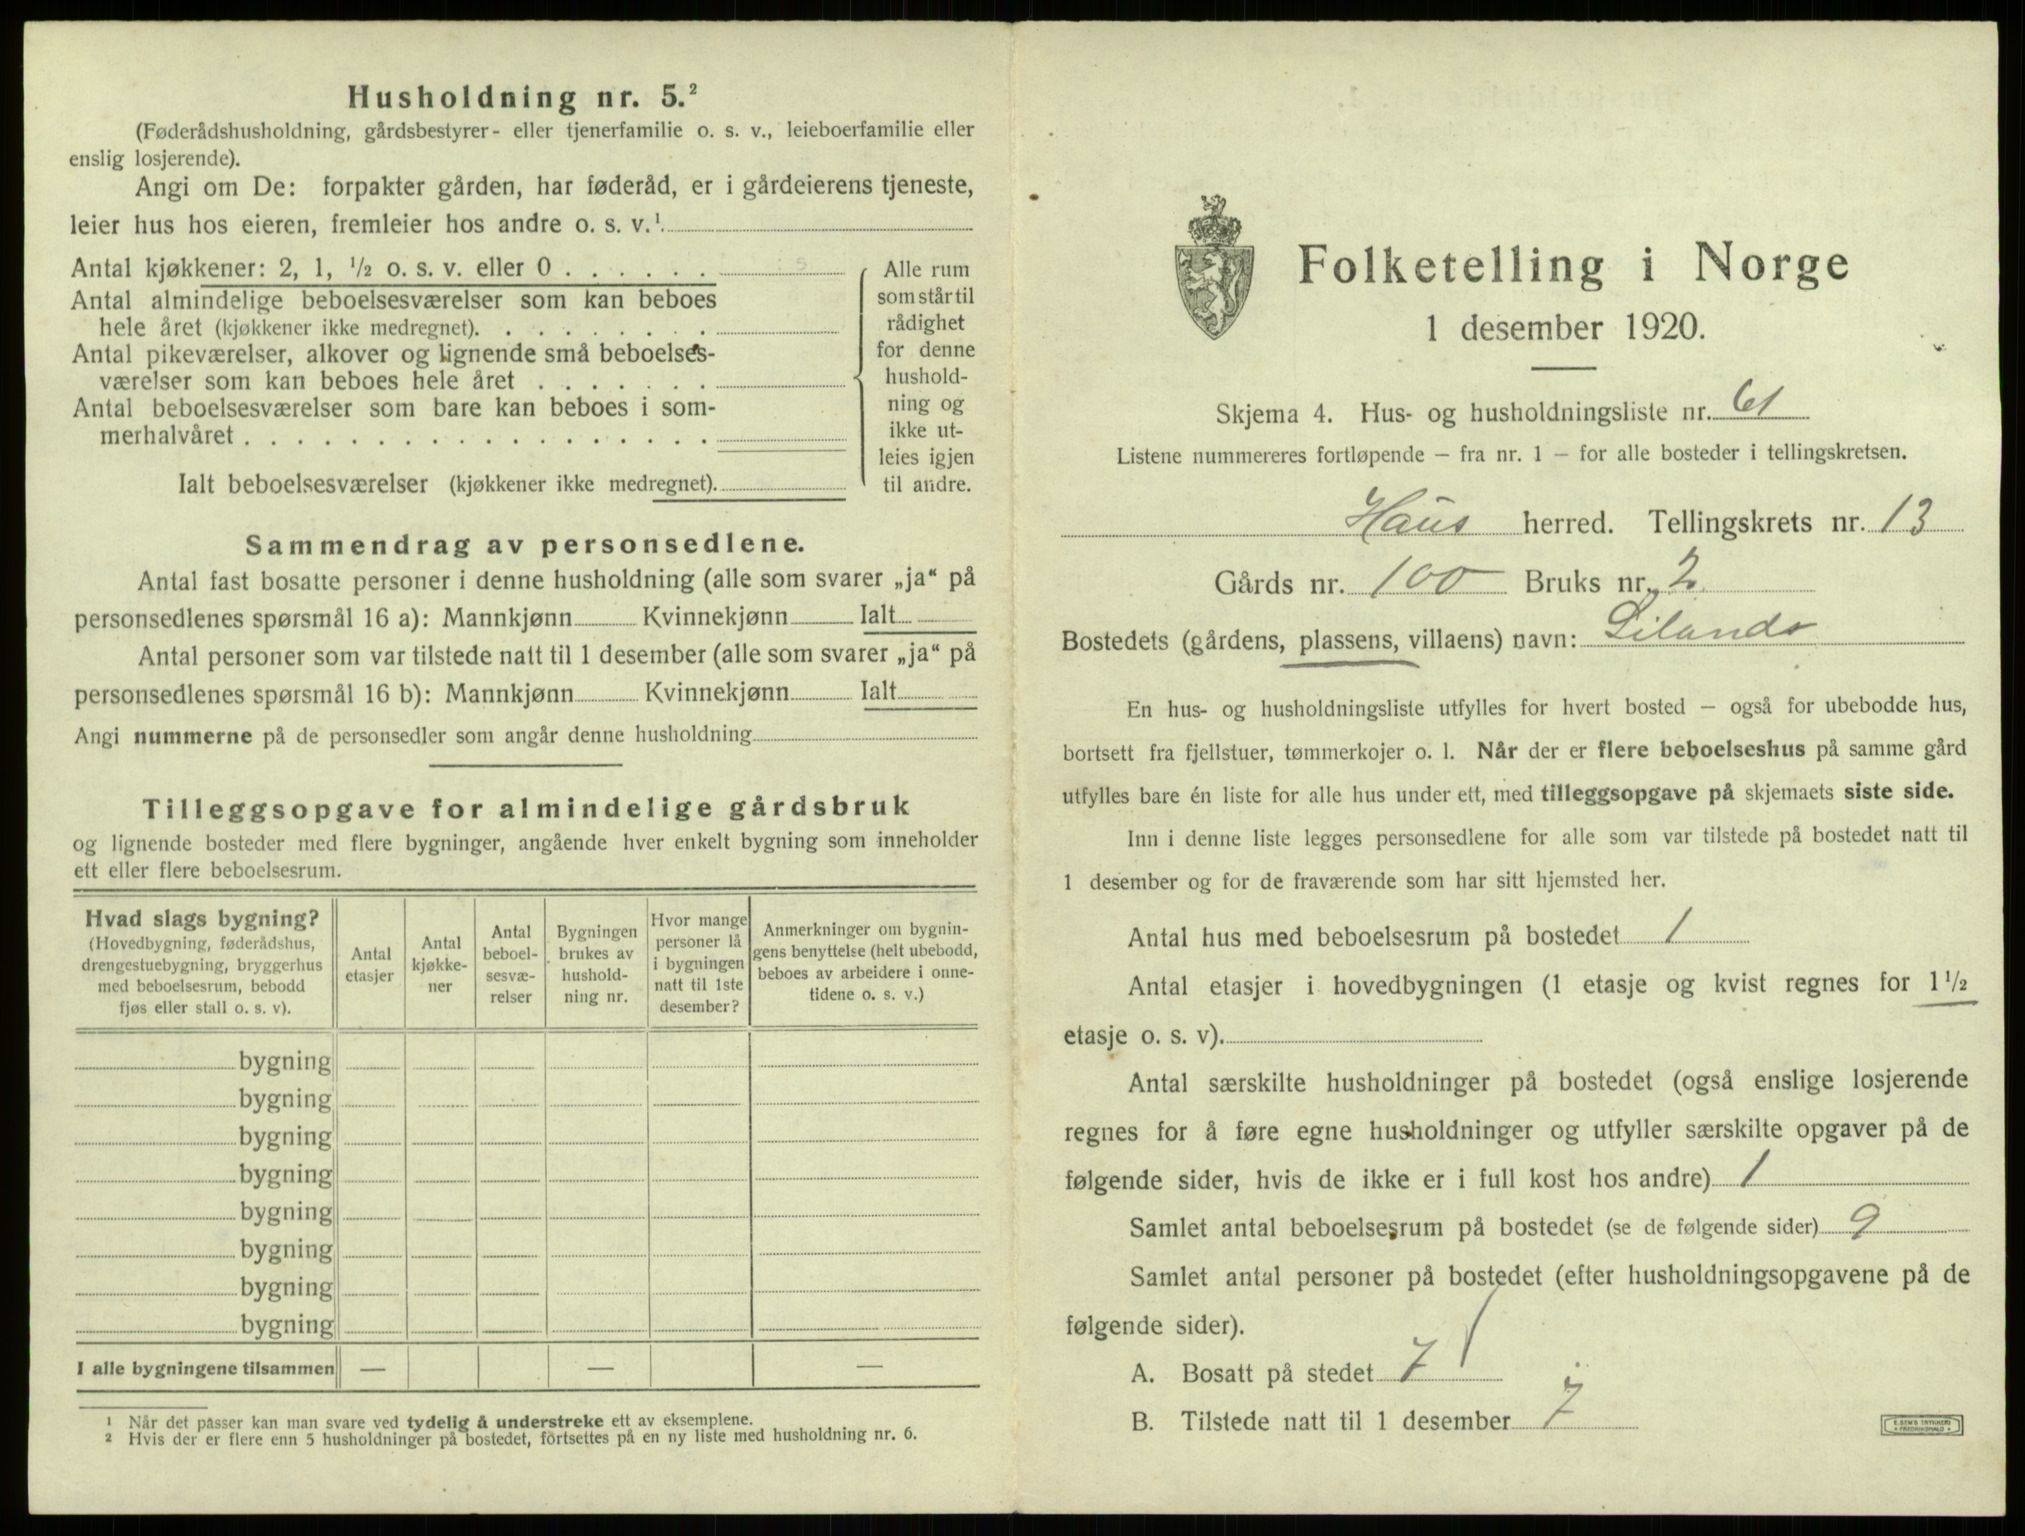 Husholdning nr. 5.²
(Føderådshusholdning, gårdsbestyrer- eller tjenerfamilie o. s. v., leieboerfamilie eller
enslig losjerende).
Angi om De: forpakter gården, har føderåd, er i gårdeierens tjeneste,
leier hus hos eieren, fremleier hos andre o. s. v.¹
Antal kjøkkener: 2, 1, ½ o. s. v. eller 0 . . . . . .
Antal almindelige beboelsesværelser som kan beboes
hele året (kjøkkener ikke medregnet). . . . . . . . .
Antal pikeværelser, alkover og lignende små beboelses-
værelser som kan beboes hele året . . . . . . .
Antal beboelsesværelser som bare kan beboes i som-
merhalvåret . . . . . . . . . . . . . . . . . .
Ialt beboelsesværelser (kjøkkener ikke medregnet).
Alle rum
som står til
rådighet
for denne
hushold-
ning og
ikke ut-
leies igjen
til andre.
Sammendrag av personsedlene.
Antal fast bosatte personer i denne husholdning (alle som svarer „ja“ på
personsedlenes spørsmål 16 a): Mannkjønn Kvinnekjønn Ialt
Antal personer som var tilstede natt til 1 desember (alle som svarer „ja“ på
personsedlenes spørsmål 16 b): Mannkjønn Kvinnekjønn Ialt
Angi nummerne på de personsedler som angår denne husholdning
Tilleggsopgave for almindelige gårdsbruk
og lignende bosteder med flere bygninger, angående hver enkelt bygning som inneholder
ett eller flere beboelsesrum.
Hvad slags bygning?
(Hovedbygning, føderådshus,
drengestuebygning, bryggerhus
med beboelsesrum, bebodd
fjøs eller stall o. s. v).
Antal
etasjer
Antal
kjøkke-
ner
Antal
beboel-
sesvæ-
relser
Bygningen
brukes av
hushold-
ning nr.
Hvor mange
personer lå
i bygningen
natt til 1ste
desember?
Anmerkninger om bygnin-
gens benyttelse (helt ubebodd,
beboes av arbeidere i onne-
tidene o. s. v.)
bygning
bygning
bygning
bygning
bygning
bygning
bygning
bygning
I alle bygningene tilsammen — — —
¹ Når det passer kan man svare ved tydelig å understreke ett av eksemplene.
² Hvis der er flere enn 5 husholdninger på bostedet, fortsettes på en ny liste med husholdning nr. 6.
Folketelling i Norge
1 desember 1920.
Skjema 4. Hus- og husholdningsliste nr. 61
Listene nummereres fortløpende — fra nr. 1 — for alle bosteder i tellingskretsen.
Haus herred. Tellingskrets nr. 13
Gårds nr. 100 Bruks nr. 2
Bostedets (gårdens, plassens, villaens) navn: Lilands
En hus- og husholdningsliste utfylles for hvert bosted — også for ubebodde hus,
bortsett fra fjellstuer, tømmerkojer o. l. Når der er flere beboelseshus på samme gård
utfylles bare én liste for alle hus under ett, med tilleggsopgave på skjemaets siste side.
Inn i denne liste legges personsedlene for alle som var tilstede på bostedet natt til
1 desember og for de fraværende som har sitt hjemsted her.
Antal hus med beboelsesrum på bostedet 1
Antal etasjer i hovedbygningen (1 etasje og kvist regnes for 1½
etasje o. s. v).
Antal særskilte husholdninger på bostedet (også enslige losjerende
regnes for å føre egne husholdninger og utfyller særskilte opgaver på de
følgende sider, hvis de ikke er i full kost hos andre) 1
Samlet antal beboelsesrum på bostedet (se de følgende sider) 9
Samlet antal personer på bostedet (efter husholdningsopgavene på de
følgende sider).
A. Bosatt på stedet 7
B. Tilstede natt til 1 desember 7